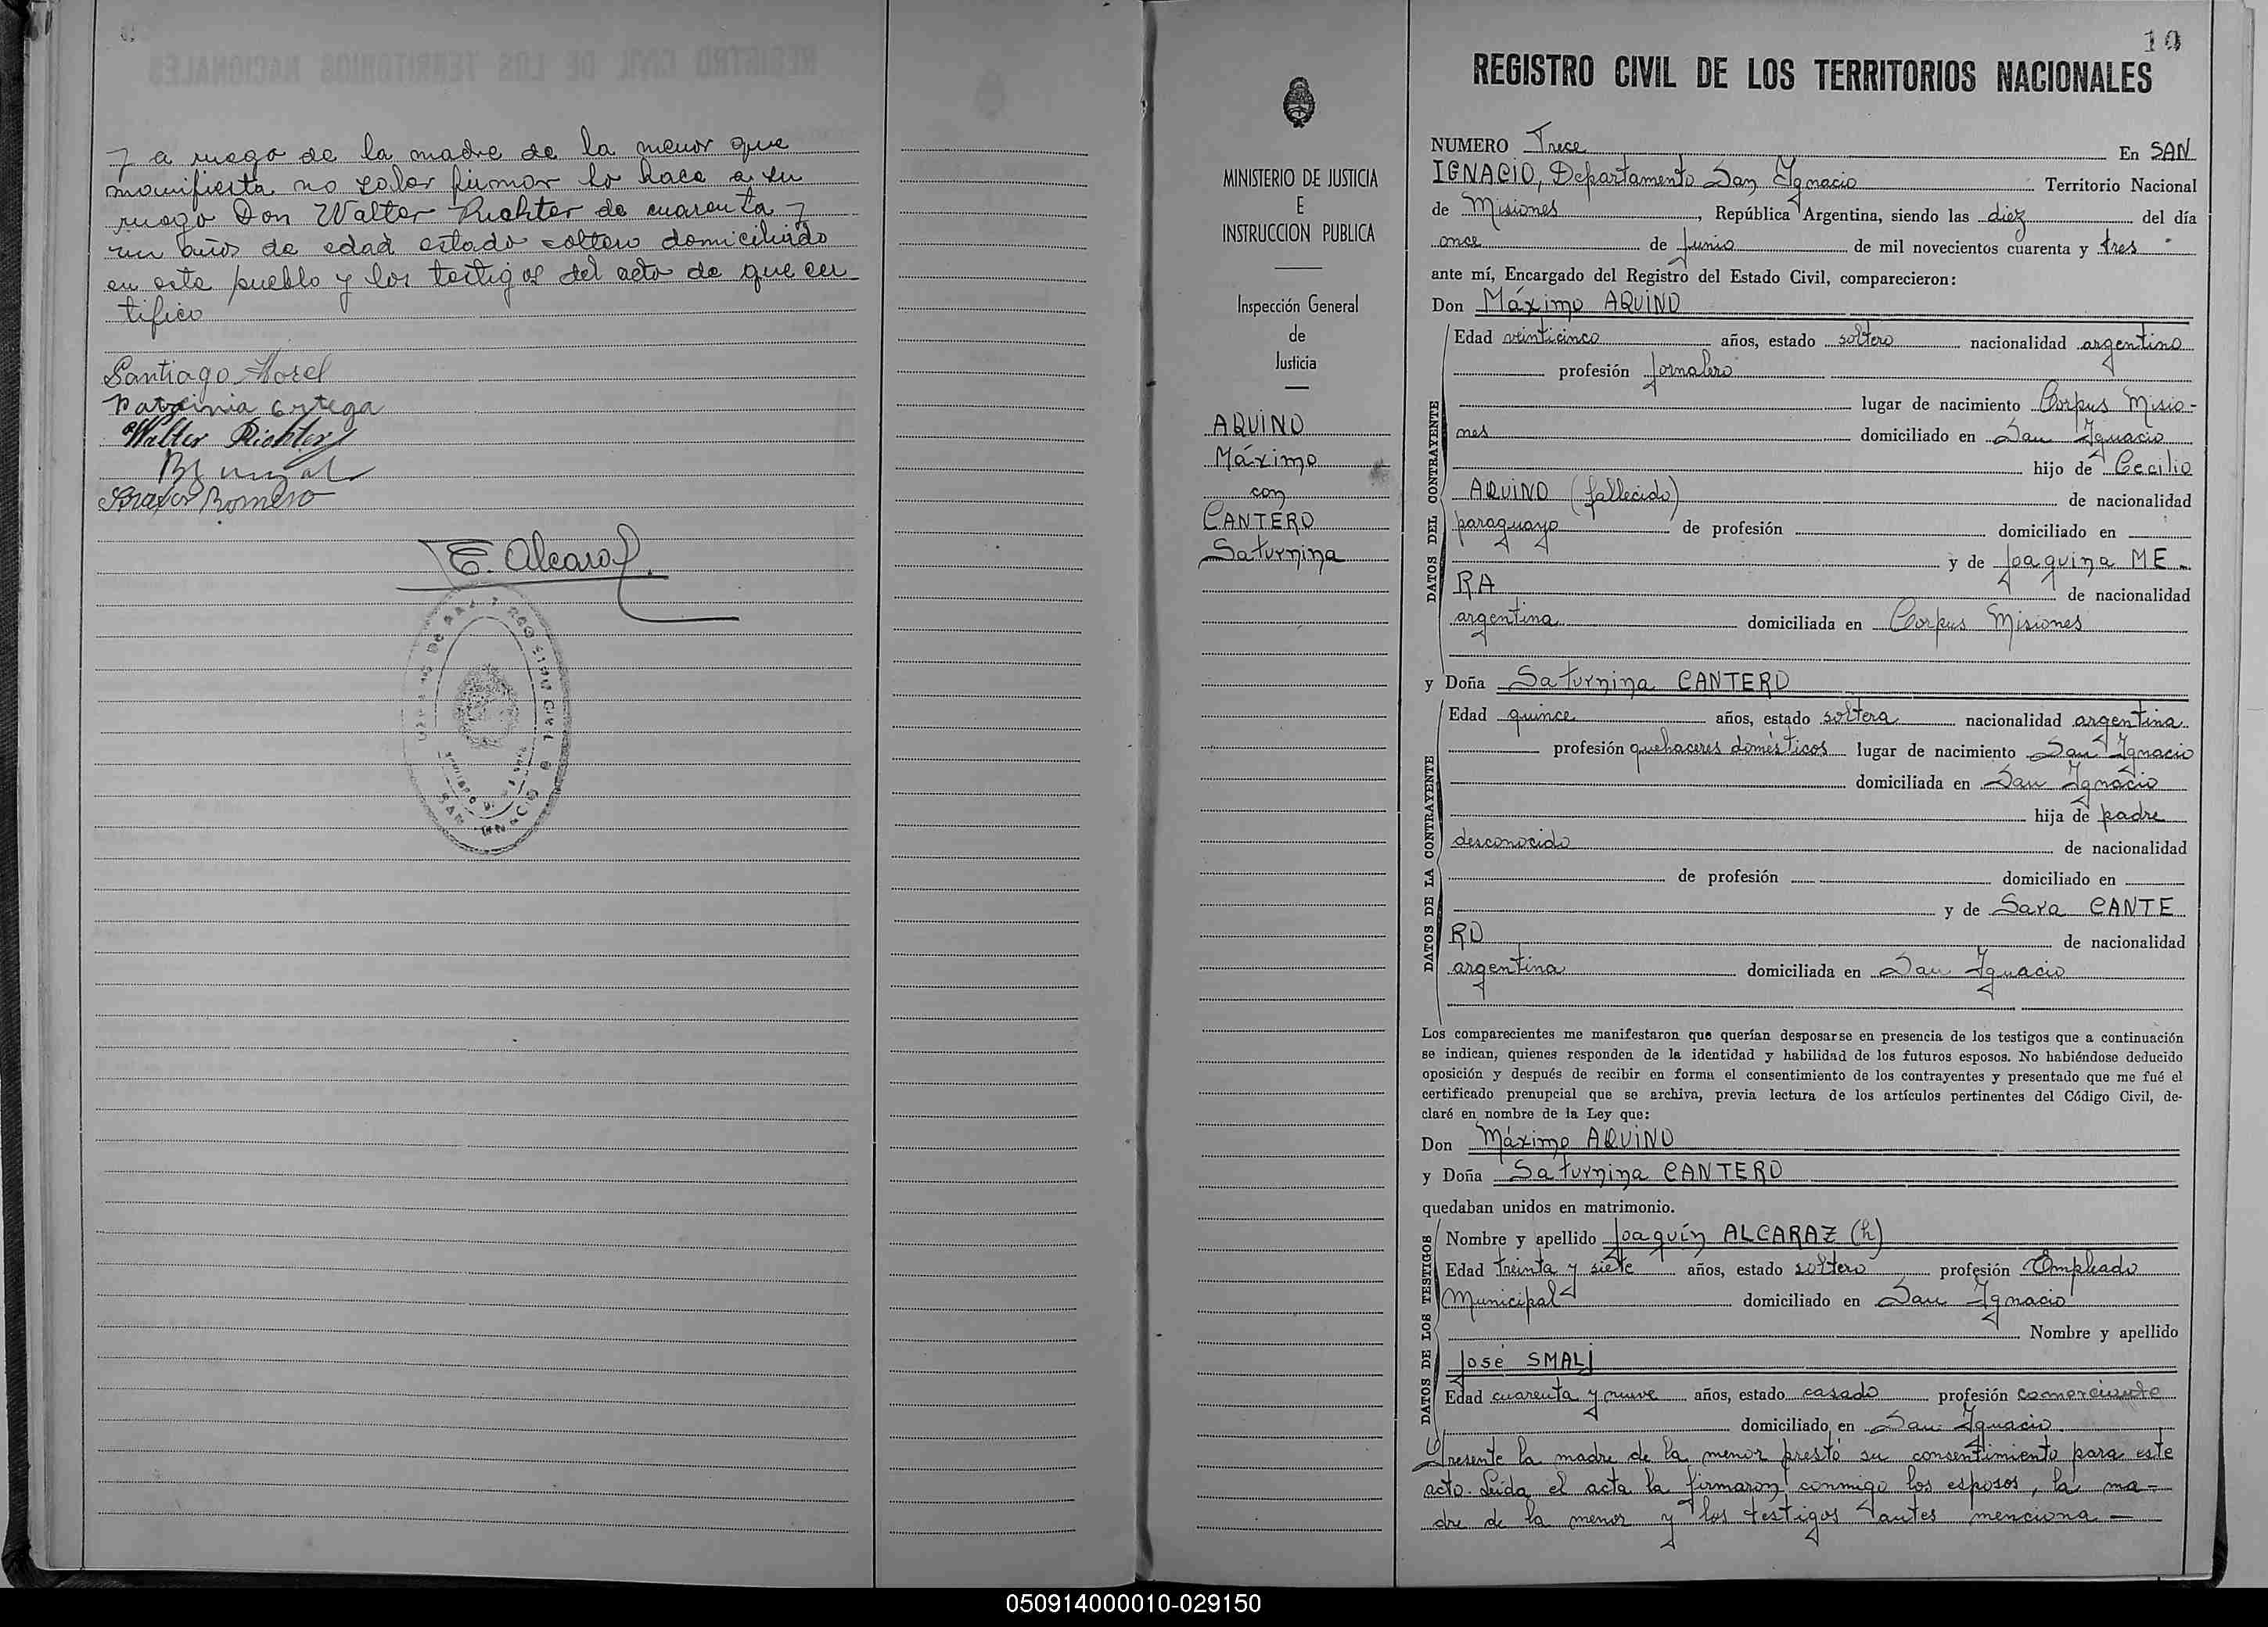 y a ruego de la madre de la menor que
manifiesta no saber firmar lo hace a su
ruego Don Walter Richter de cuarenta y
un años de edad estado soltero domiciliado
en este pueblo y los testigos del acto de que cer
tifico
Santiago Morel
Patrinia Ortega
Walter Richter
Romero
E. Alcaraz
10
REGISTRO CIVIL DE LOS TERRITORIOS NACIONALES
MINISTERIO DE JUSTICIA
E
INSTRUCCION PUBLICA
Inspección General
de
Justicia
AQUINO
Máximo
con
CANTERO
Saturnina
NUMERO Trece En SAN
IGNACIO, Departamento San Ignacio Territorio Nacional
de Misiones, República Argentina, siendo las diez del día
once de Junio de mil novecientos cuarenta y tres
ante mí, Encargado del Registro del Estado Civil, comparecieron:
Don Máximo AQUINO
DATOS DEL CONTRAYENTE
Edad veinticinco años, estado soltero nacionalidad argentino
profesión jornalero
lugar de nacimiento Corpus Misio-
nes domiciliado en San Ignacio
hijo de Cecilio
AQUINO (fallecido) de nacionalidad
paraguayo de profesión domiciliado en
y de Joaquina ME-
RA de nacionalidad
argentina domiciliada en Corpus Misiones
y Doña Saturnina CANTERO
DATOS DE LA CONTRAYENTE
Edad quince años, estado soltera nacionalidad argentina
profesión quehaceres domésticos lugar de nacimiento San Ignacio
domiciliada en San Ignacio
hija de padre
desconocido de nacionalidad
de profesión domiciliado en
y de Sara CANTE
RO de nacionalidad
argentina domiciliada en San Ignacio
Los comparecientes me manifestaron que querían desposarse en presencia de los testigos que a continuación
se indican, quienes responden de la identidad y habilidad de los futuros esposos. No habiéndose deducido
oposición y después de recibir en forma el consentimiento de los contrayentes y presentado que me fué el
certificado prenupcial que se archiva, previa lectura de los artículos pertinentes del Código Civil, de-
claré en nombre de la Ley que:
Don Máximo AQUINO
y Doña Saturnina CANTERO
quedaban unidos en matrimonio.
DATOS DE LOS TESTIGOS
Nombre y apellido Joaquín ALCARAZ (h)
Edad treinta y siete años, estado soltero profesión Empleado
Municipal domiciliado en San Ignacio
Nombre y apellido
José SMALJ
Edad cuarenta y nueve años, estado casado profesión comerciante
domiciliado en San Ignacio
Presente la madre de la menor prestó su consentimiento para este
acto. Leída el acta la firmaron conmigo los esposos, la ma-
dre de la menor y los testigos antes menciona-
050914000010-029150